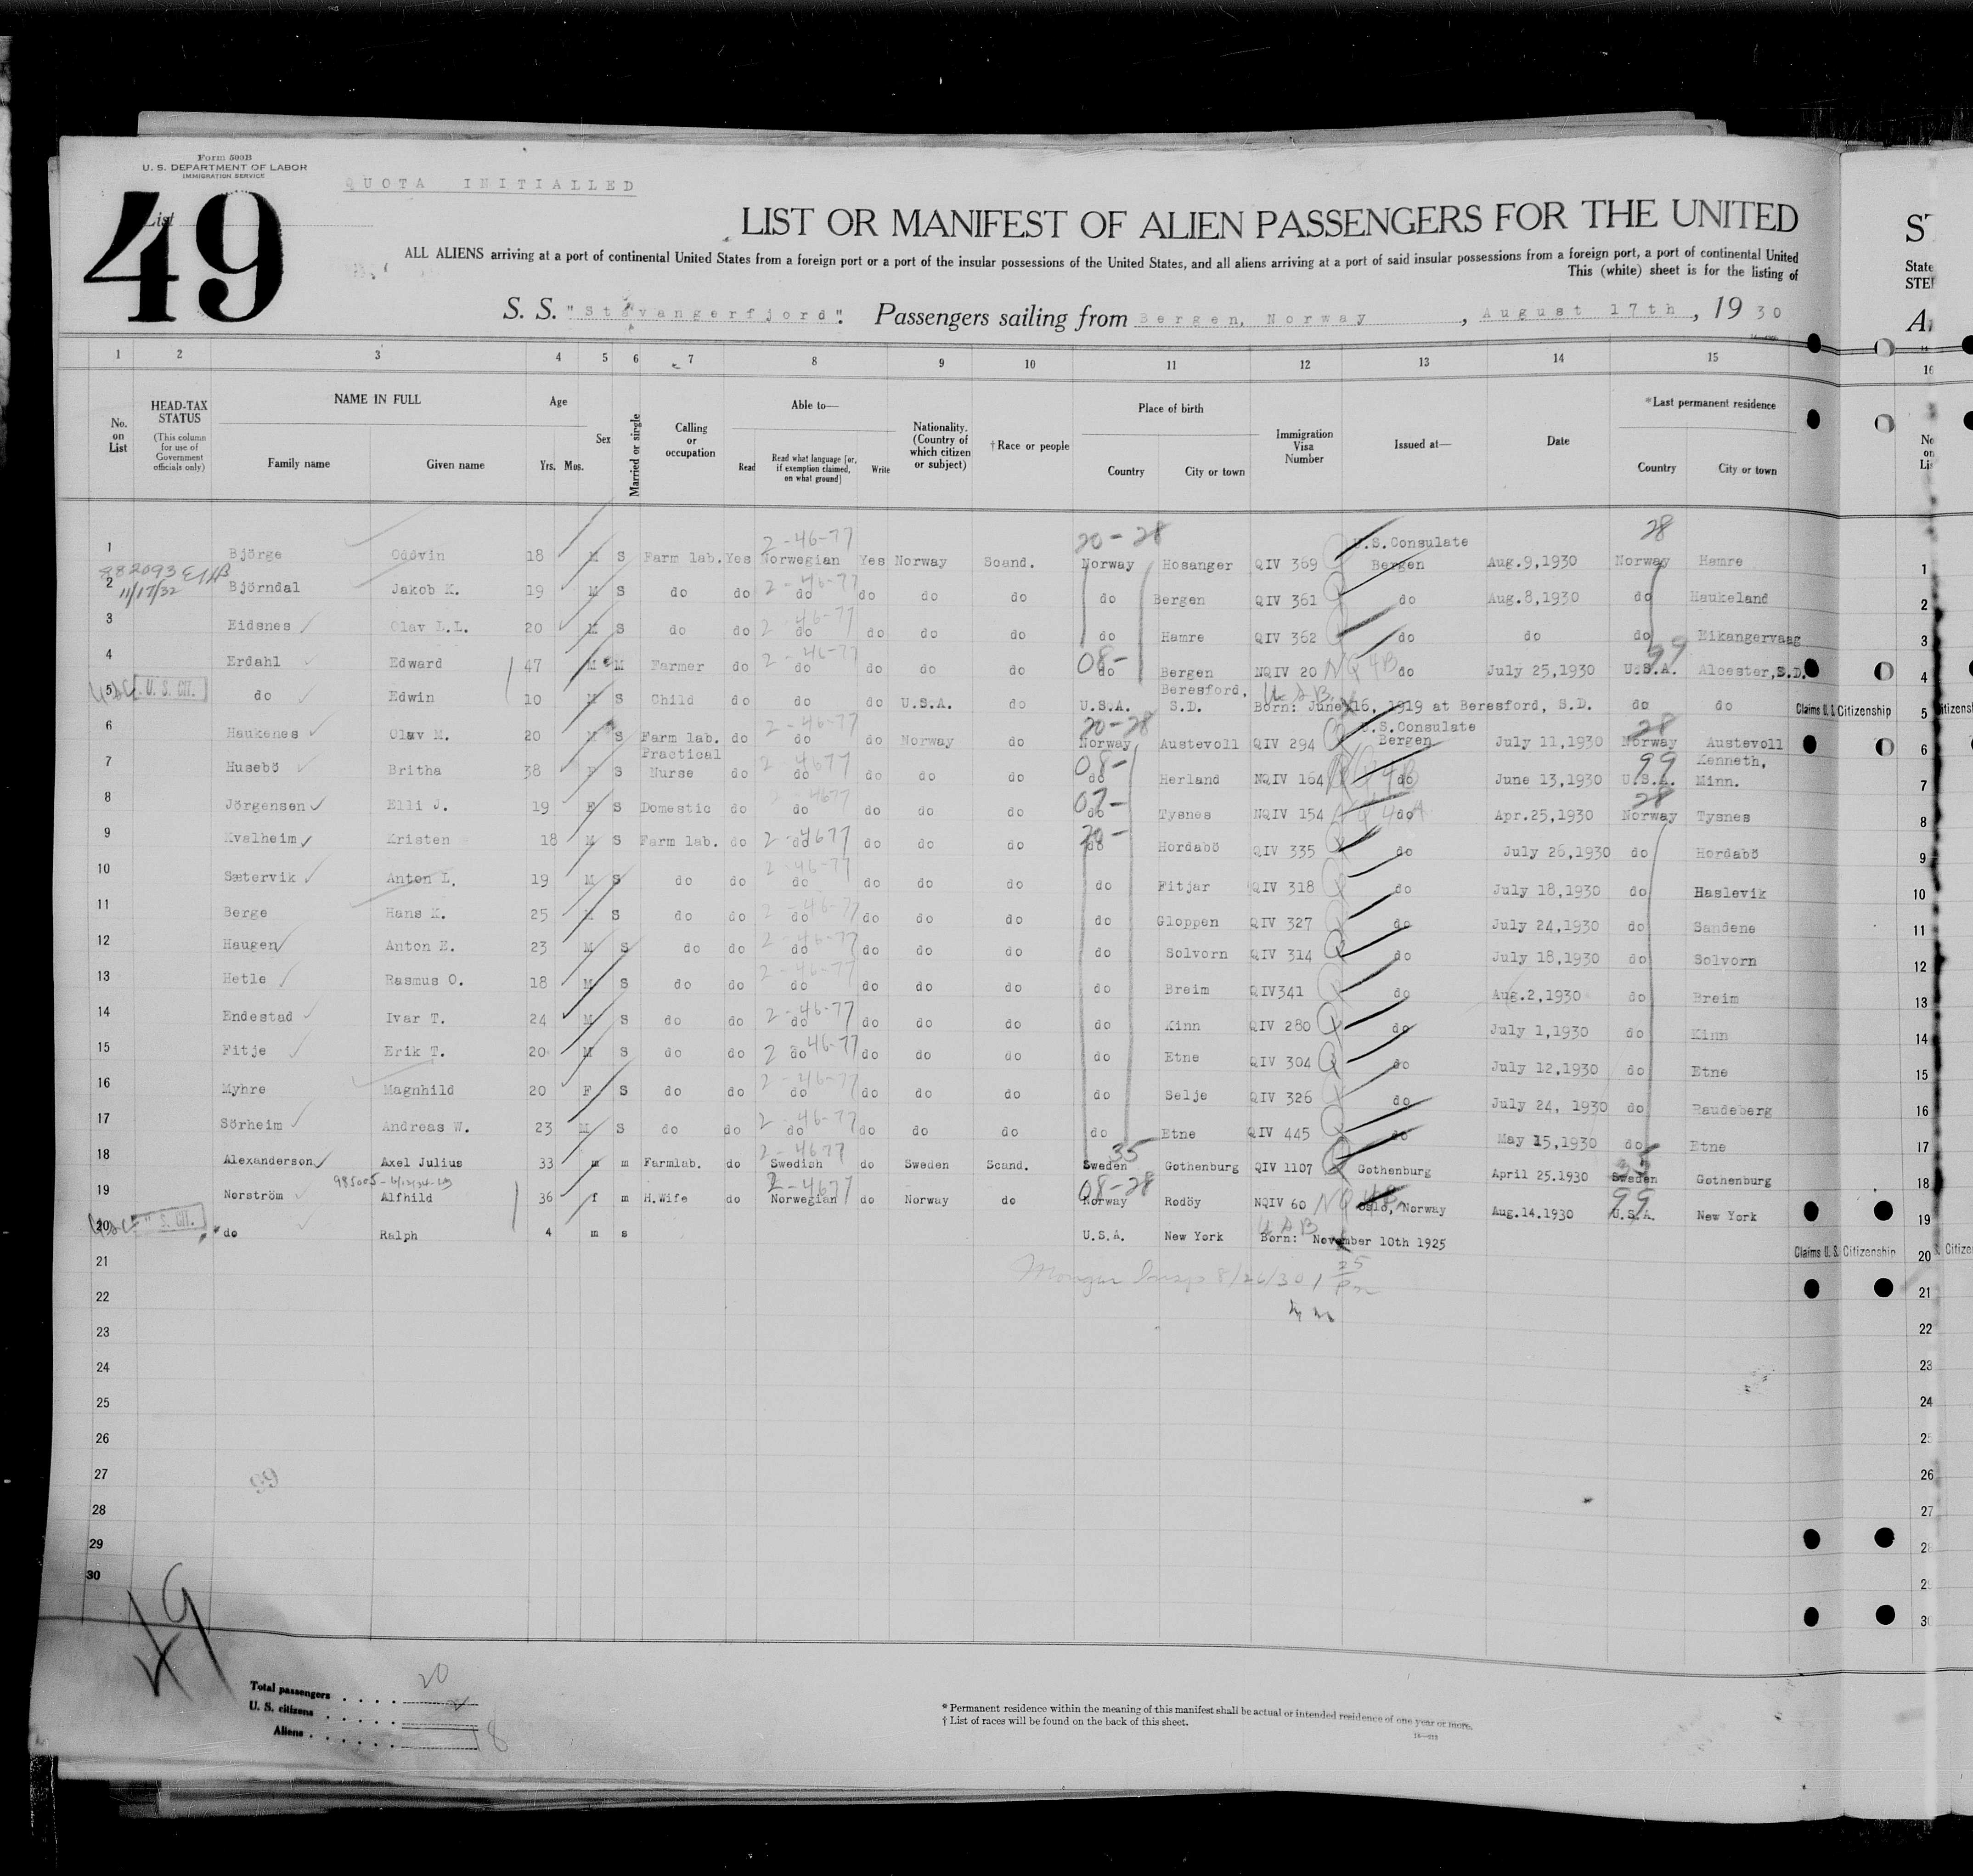 Form 500B
U. S. DEPARTMENT OF LABOR
IMMIGRATION SERVICE
QUOTA INITIALLED
List
49
LIST OR MANIFEST OF ALIEN PASSENGERS FOR THE UNITED
ALL ALIENS arriving at a port of continental United States from a foreign port or a port of the insular possessions of the United States, and all aliens arriving at a port of said insular possessions from a foreign port, a port of continental United
This (white) sheet is for the listing of
S. S. "Stavangerfjord". Passengers sailing from Bergen, Norway, August 17th, 19 30
1 2 3 4 5 6 7 8 9 10 11 12 13 14 15
No. on List
HEAD-TAX STATUS (This column for use of Government officials only)
NAME IN FULL Family name Given name
Age Yrs. Mos.
Sex
Married or single
Calling or occupation
Able to— Read Read what language [or, if exemption claimed, on what ground] Write
Nationality. (Country of which citizen or subject)
†Race or people
Place of birth Country City or town
Immigration Visa Number
Issued at—
Date
*Last permanent residence Country City or town
2-46-77 20-28 28
1 Björge Oddvin 18 M S Farm lab. Yes Norwegian Yes Norway Scand. Norway Hosanger QIV 369 U.S.Consulate Bergen Aug.9,1930 Norway Hamre
982093
11/17/32
2 Björndal Jakob K. 19 M S do do 2-46-77 do do do do do Bergen QIV 361 do Aug.8,1930 do Haukeland
3 Eidsnes Olav L.L. 20 M S do do 2-46-77 do do do do do Hamre QIV 362 do do do Eikangervaag
4 Erdahl Edward 47 M M Farmer do 2-46-77 do do do do 08- do Bergen NQIV 20 NQ 4B do July 25,1930 99 U.S.A. Alcester,S.D.
5 USC U. S. CIT. do Edwin 10 M S Child do do do U.S.A. do U.S.A. Beresford, S.D. USB Born: June 16, 1919 at Beresford, S.D. do do Claims U.S. Citizenship
6 Haukenes Olav M. 20 M S Farm lab. do 2-46-77 do do Norway do 20-28 Norway Austevoll QIV 294 U.S.Consulate Bergen July 11,1930 28 Norway Austevoll
7 Husebö Britha 38 F S Practical Nurse do 2-4677 do do do do 08- do Herland NQIV 164 do June 13,1930 99 U.S.A. Kenneth, Minn.
8 Jörgensen Elli J. 19 F S Domestic do 2-4677 do do do do 07- do Tysnes NQIV 154 do Apr.25,1930 28 Norway Tysnes
9 Kvalheim Kristen 18 M S Farm lab. do 2-4677 do do do do 20- do Hordabö QIV 335 do July 26,1930 do Hordabö
10 Sætervik Anton L. 19 M S do do 2-46-77 do do do do do Fitjar QIV 318 do July 18,1930 do Haslevik
11 Berge Hans K. 25 M S do do 2-46-77 do do do do do Gloppen QIV 327 do July 24,1930 do Sandene
12 Haugen Anton E. 23 M S do do 2-46-77 do do do do do Solvorn QIV 314 do July 18,1930 do Solvorn
13 Hetle Rasmus O. 18 M S do do 2-46-77 do do do do do Breim QIV341 do Aug.2,1930 do Breim
14 Endestad Ivar T. 24 M S do do 2-46-77 do do do do do Kinn QIV 280 do July 1,1930 do Kinn
15 Fitje Erik T. 20 M S do do 2 46-77 do do do do do Etne QIV 304 do July 12,1930 do Etne
16 Myhre Magnhild 20 F S do do 2-46-77 do do do do do Selje QIV 326 do July 24, 1930 do Raudeberg
17 Sörheim Andreas W. 23 M S do do 2-46-77 do do do do do Etne QIV 445 do May 15,1930 do Etne
18 Alexanderson Axel Julius 33 m m Farmlab. do 2-4677 Swedish do Sweden Scand. 35 Sweden Gothenburg QIV 1107 Gothenburg April 25.1930 35 Sweden Gothenburg
19 Norström Alfhild 36 f m H.Wife do 2-4677 Norwegian do Norway do 08-28 Norway Rodöy NQIV 60 NQ 4B Oslo, Norway Aug.14.1930 99 U.S.A. New York
20 USC U. S. CIT. do Ralph 4 m s U.S.A. New York USB Born: November 10th 1925 Claims U.S. Citizenship
21 Insp 8/26/30
22
23
24
25
26
27
28
29
30
49
Total passengers . . . . 20
U. S. citizens . . . . . 2
Aliens . . . . . . 18
* Permanent residence within the meaning of this manifest shall be actual or intended residence of one year or more.
† List of races will be found on the back of this sheet.